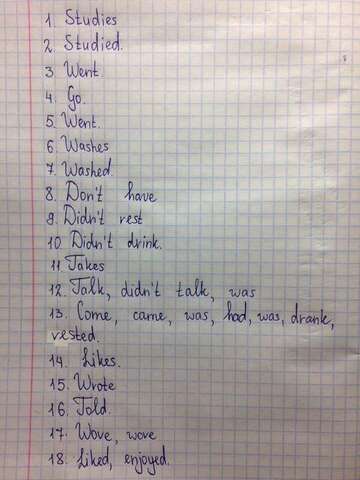 1. Studies
2. Studied.
3. Went.
4. Go.
5. Went.
6. Washes
7. Washed.
8. Don't have
9. Didn't rest
10 Didn't drink.
11 Takes
12. Talk, didn't talk, was
13. Come, came, was, had, was, drank,
rested.
14. Likes.
15. Wrote
16. Told.
17. Wove, wove
18. Liked, enjoyed.